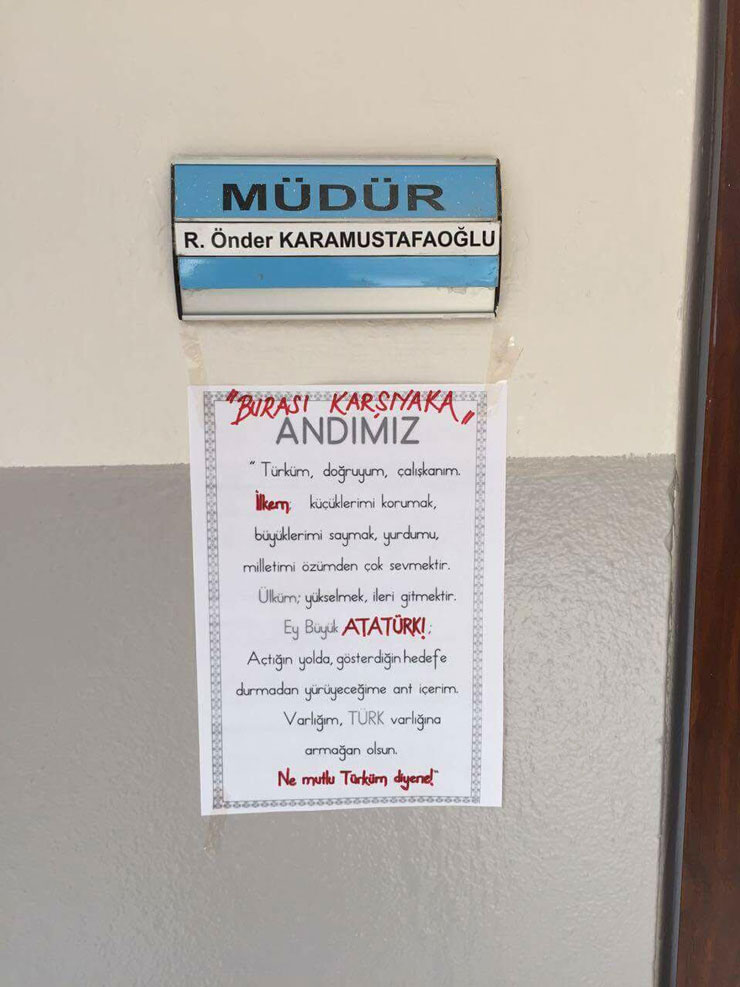 MÜDÜR
R. Önder KARAMUSTAFAOĞLU
"BURASI KARŞIYAKA"
ANDIMIZ
" Türküm, doğruyum, çalışkanım.
İlkem; küçüklerimi korumak,
büyüklerimi saymak, yurdumu,
milletimi özümden çok sevmektir.
Ülküm; yükselmek, ileri gitmektir.
Ey Büyük ATATÜRK!;
Açtığın yolda, gösterdiğin hedefe
durmadan yürüyeceğime ant içerim.
Varlığım, TÜRK varlığına
armağan olsun.
Ne mutlu Türküm diyene!"